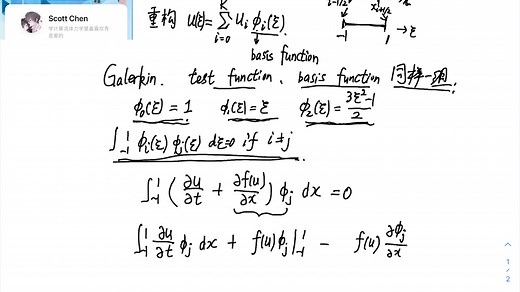 Scott Chen
重构 u(ξ)=∑_{i=0}^{K} u_i φ_i(ξ). x_{i-1/2} x_{i+1/2}
-1 1 →ξ
basis function
Galerkin. test function, basis function 同样一组.
φ_0(ξ) = 1 φ_1(ξ) = ξ φ_2(ξ) = (3ξ²-1)/2
∫_{-1}^{1} φ_i(ξ) φ_j(ξ) dξ=0 if i≠j
∫_{-1}^{1} (∂u/∂t + ∂f(u)/∂x) φ_j dx = 0
∫_{-1}^{1} ∂u/∂t φ_j dx + f(u)φ_j |_{-1}^{1} - f(u) ∂φ_j/∂x
1
/
2